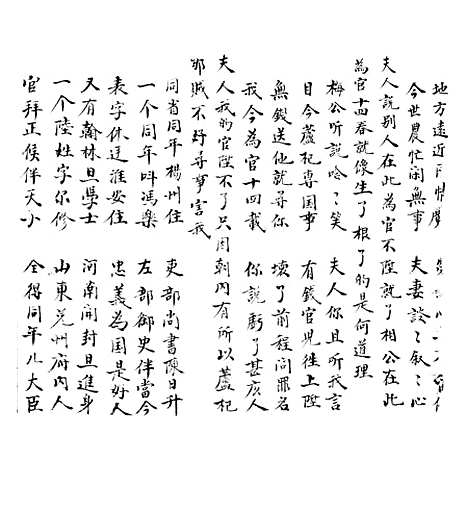 地方遠近
今世農忙闲無事 夫妻談〻叙〻心
夫人說别人在此為官不陞就了相公在此
為官十四春就像生了根了的是何道理
梅公听說唸〻笑 夫人你且听我言
目今蘆杞専国事 有錢官児徃上陞
無錢送他就尋你 壊了前程问罪名
我今為官十四載 你說虧了甚庅人
夫人我的官陞不了只因朝内有所以蘆杞
那賊不好尋事害我
同省同年楊州住 吏部尚書陳日升
一个同年叫馮樂 左都御史伴當今
表字休廷淮安住 忠義為国是好人
又有翰林旦學士 河南開封旦進身
一个陸姓字尔修 山東兖州府内人
官拜正候伴天小 全得同年儿大臣